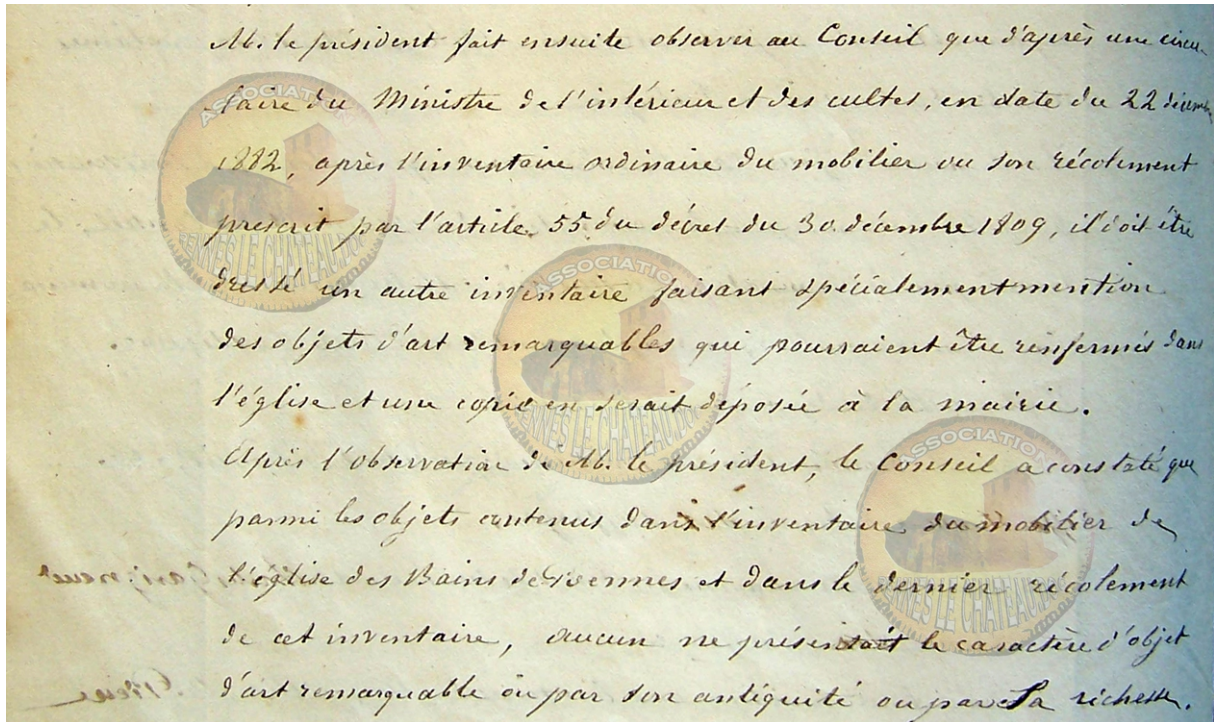 M. le président fait ensuite observer au Conseil que d'après une circu-
laire du Ministre de l'intérieur et des cultes, en date du 22 décembre
1882, après l'inventaire ordinaire du mobilier ou son récolement
prescrit par l'article 55 du décret du 30 décembre 1809, il doit être
dressé un autre inventaire faisant spécialement mention
des objets d'art remarquables qui pourraient être renfermés dans
l'église et une copie en serait déposée à la mairie.
Après l'observation de M. le président, le Conseil a constaté que
parmi les objets contenus dans l'inventaire du mobilier de
l'église des Bains de Rennes et dans le dernier récolement
de cet inventaire, aucun ne présentait le caractère d'objet
d'art remarquable ou par son antiquité ou par sa richesse.
ASSOCIATION
RENNES LE CHATEAU.DOC
ASSOCIATION
RENNES LE CHATEAU.DOC
ASSOCIATION
RENNES LE CHATEAU.DOC